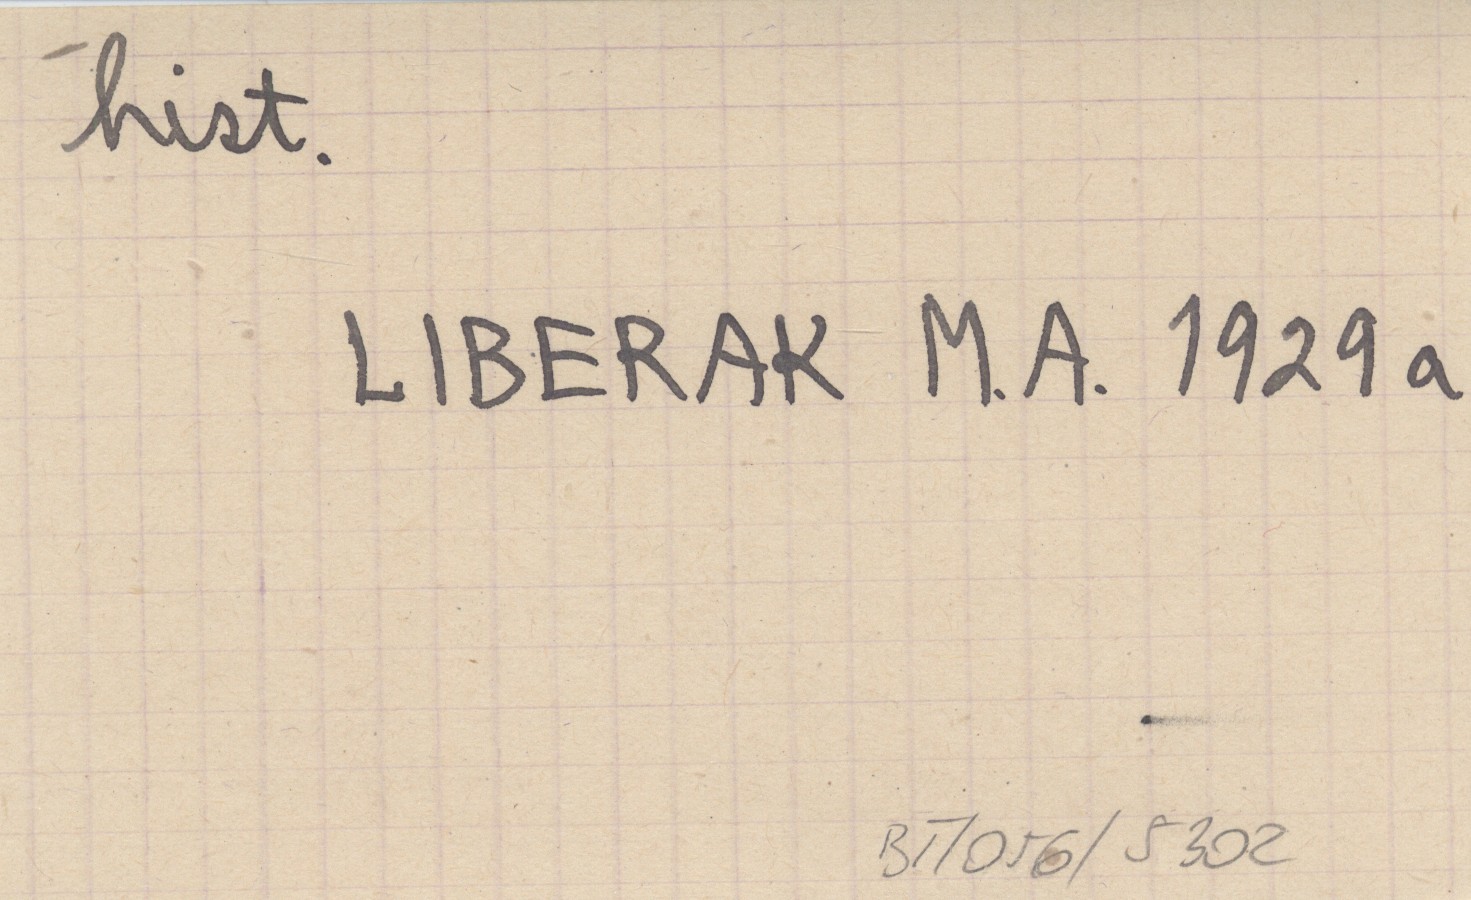 hist.
LIBERAK M.A. 1929 a
BI/056/5302